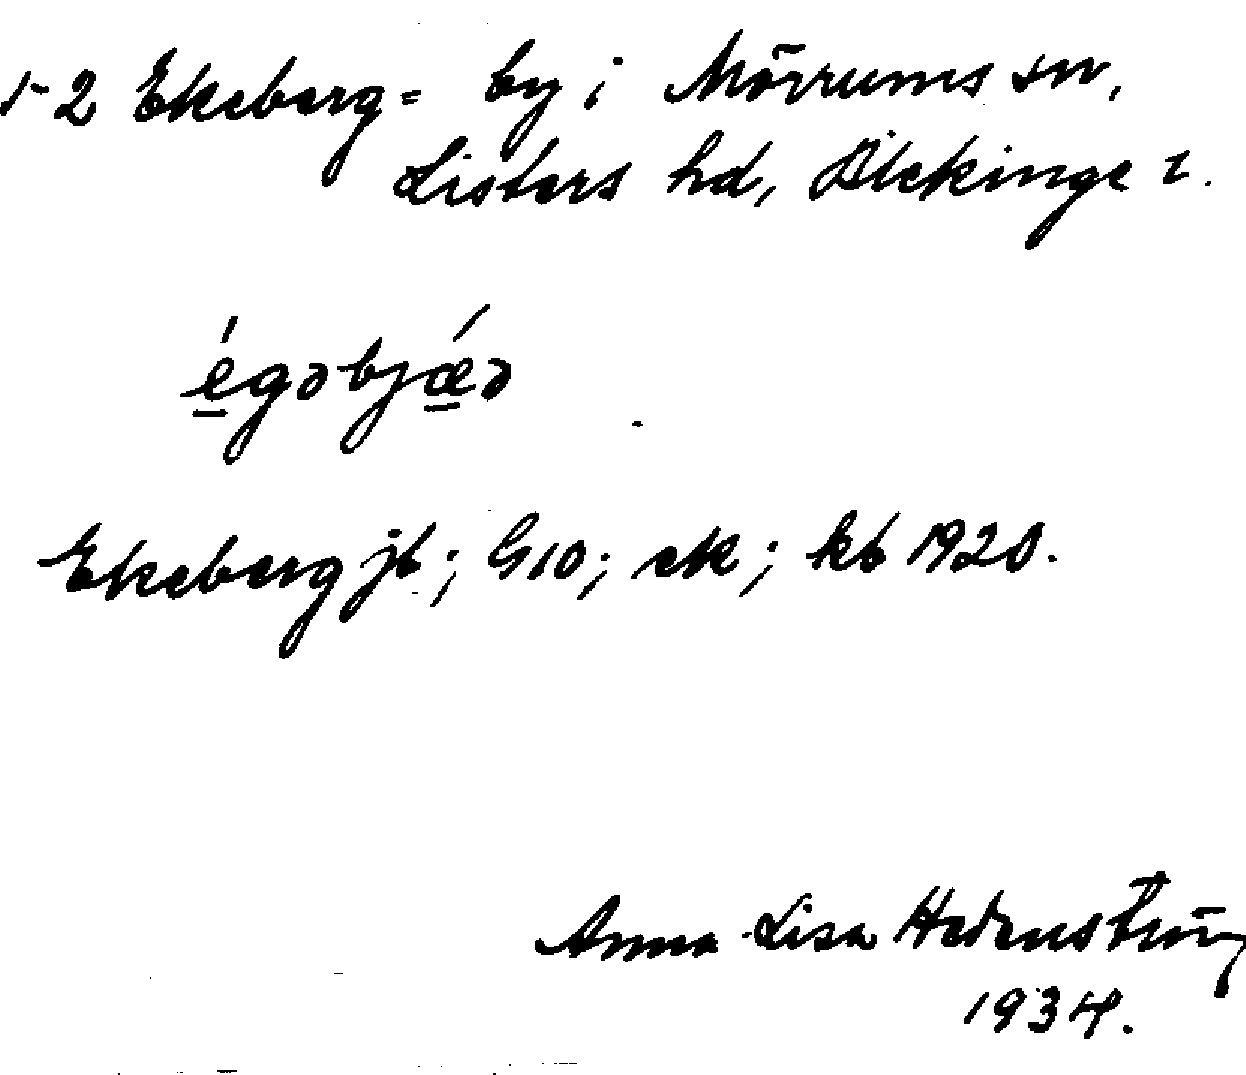 1-2 Ekeberg = by i Mörrums sn,
Listers hd, Blekinge l.
égəbjǽə
Ekeberg jb; G10; ek; kb 1920.
Anna-Lisa Hedenström
1934.